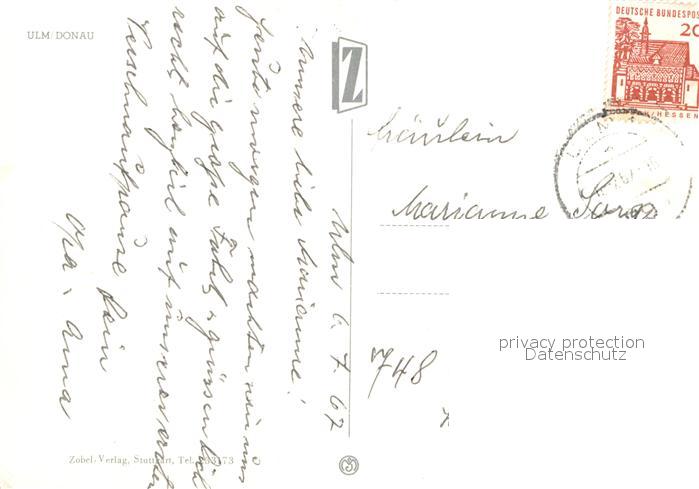 ULM/DONAU
Ulm 6. 7. 67
Unsere liebe Marianne!
Heute morgen machten wir uns
auf die große Fahrt u. grüssen Dich
recht herzlich auf unserer ersten
Verschnaufpause Dein
Opa u. Oma
Zobel-Verlag, Stuttgart, Tel.
Z
DEUTSCHE BUNDESPOS
20
HESSEN
Fräulein
Marianne
748
privacy protection
Datenschutz